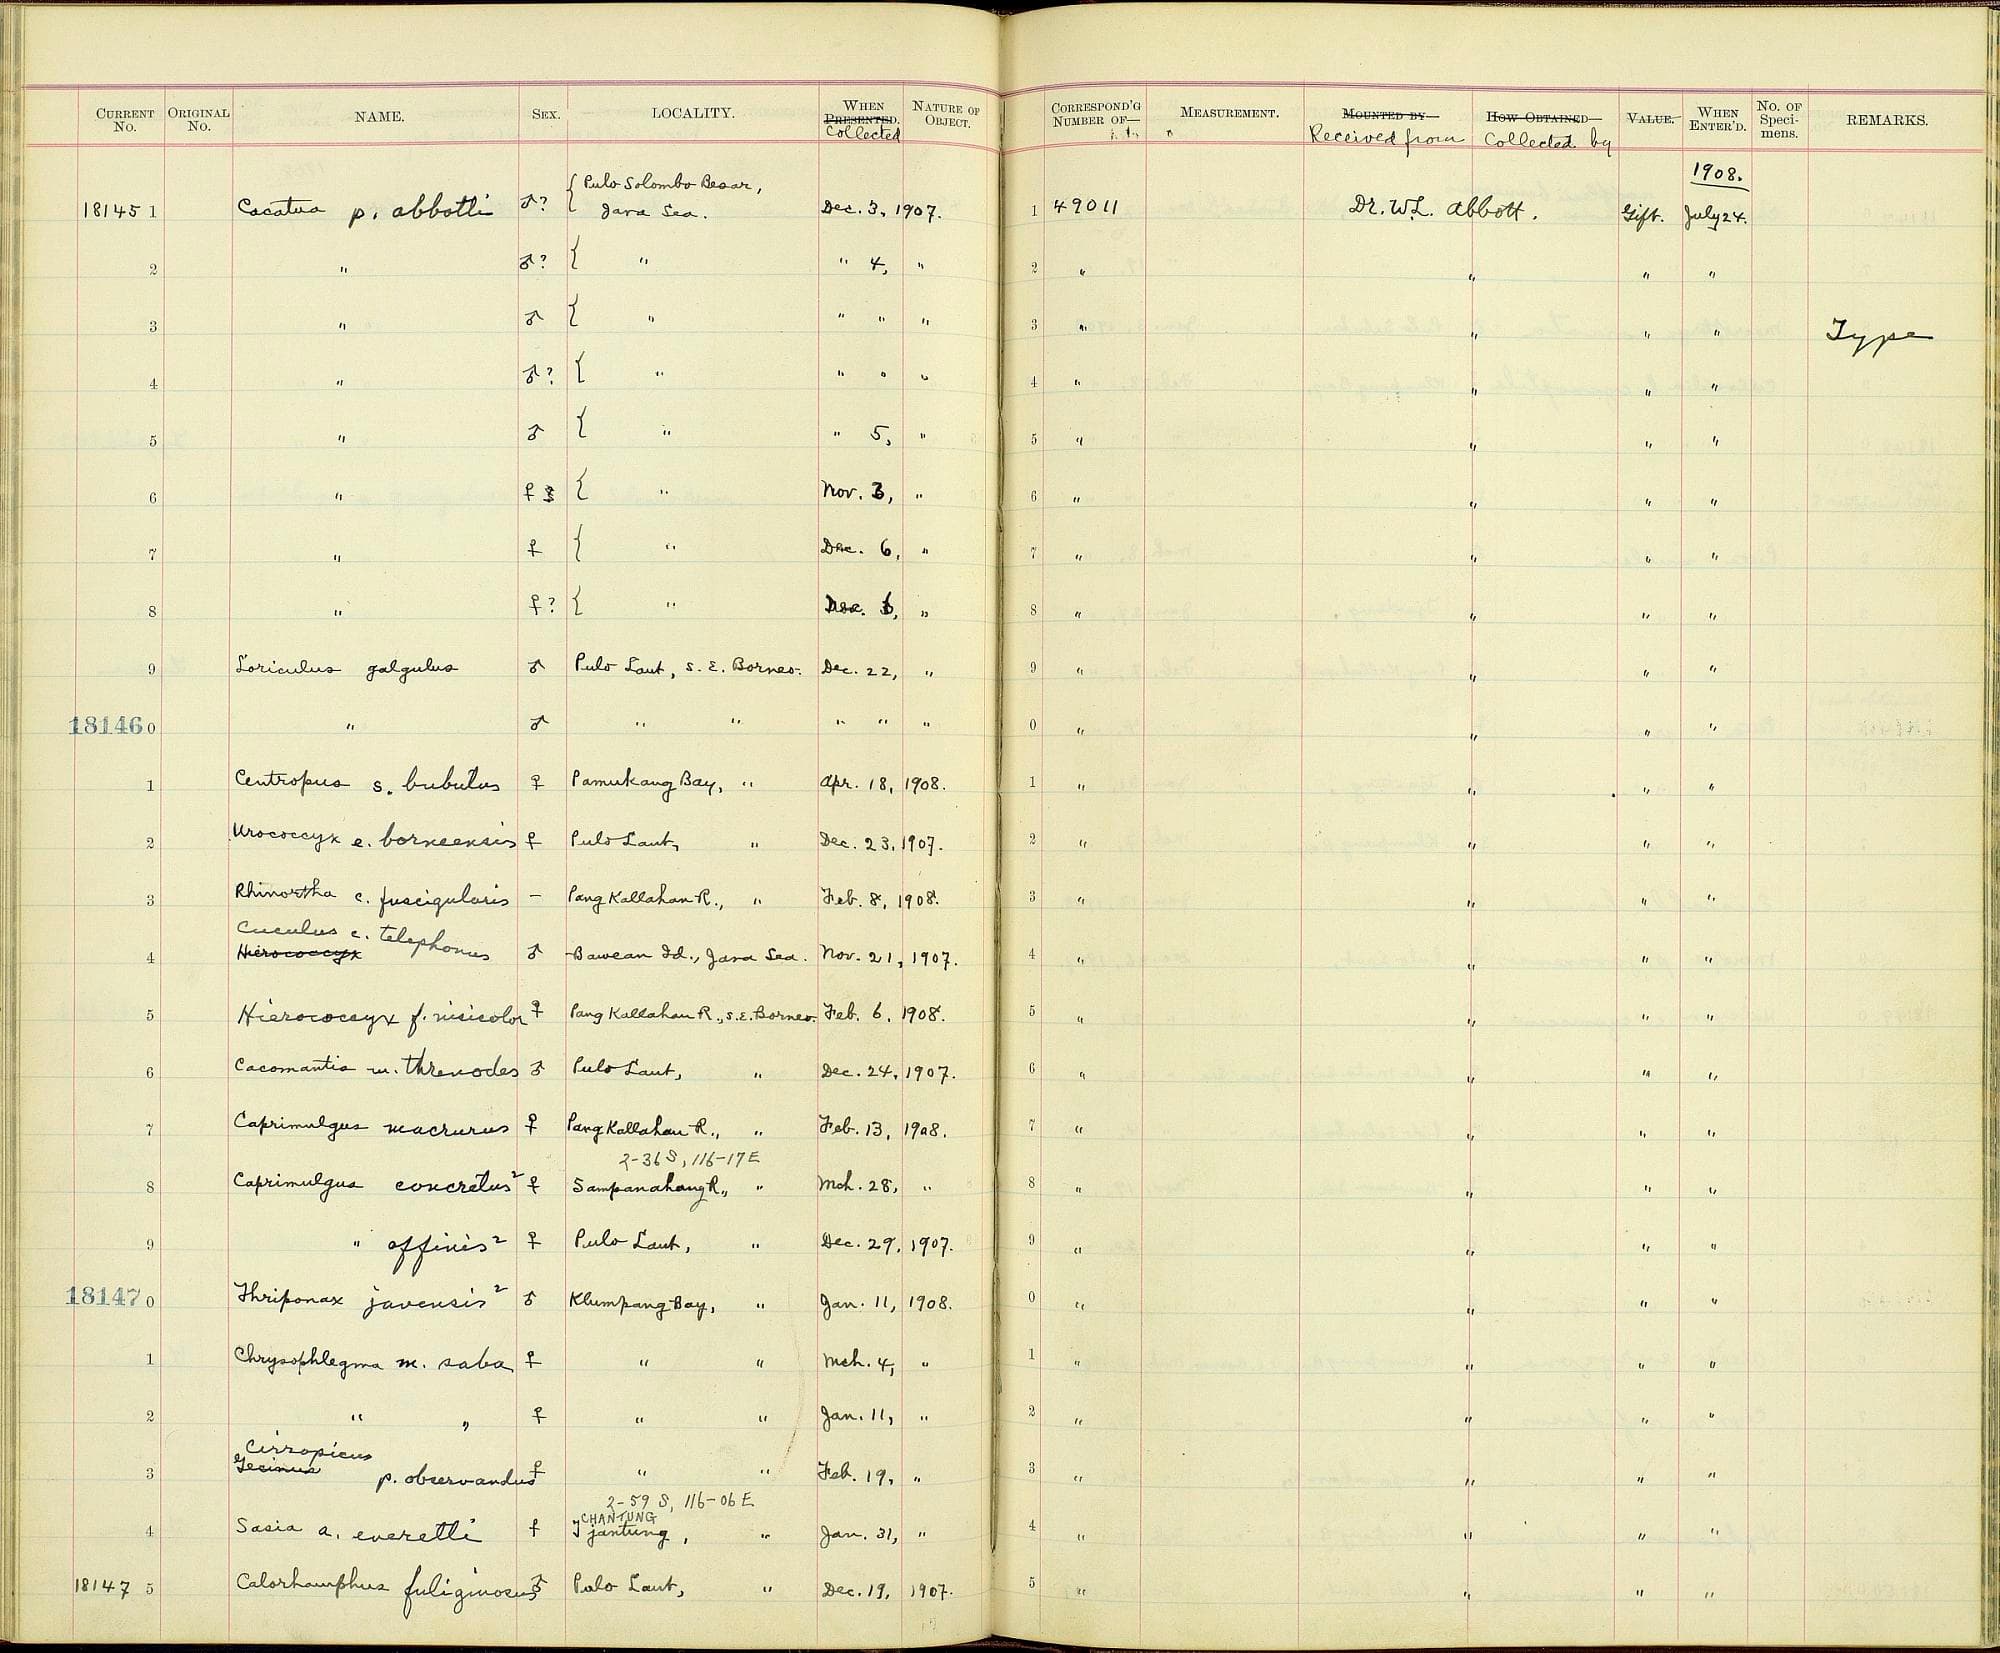 CURRENT No. ORIGINAL No. NAME. SEX. LOCALITY. WHEN PRESENTED. Collected NATURE OF OBJECT. CORRESPOND'G NUMBER OF— MEASUREMENT. MOUNTED BY— Received from HOW OBTAINED— Collected by VALUE. WHEN ENTER'D. No. OF Speci-mens. REMARKS.
1908.
Pulo Solombo Besar,
18145 1 Cacatua p. abbotti ♂? { Java Sea. Dec. 3, 1907. 1 49011 Dr. W.L. Abbott. Gift. July 24.
2 " ♂? { " " 4, " 2 " " " "
3 " ♂ { " " " " 3 " " " " Type
4 " ♂? { " " " " 4 " " " "
5 " ♂ { " " 5, " 5 " " " "
6 " ♀ { " Nov. 3, " 6 " " " "
7 " ♀ { " Dec. 6, " 7 " " " "
8 " ♀? { " " 8 " " " "
9 Loriculus galgulus ♂ Pulo Laut, S. E. Borneo. Dec. 22, " 9 " " " "
18146 0 " ♂ " " " " " 0 " " " "
1 Centropus s. bubutus ♀ Pamukang Bay, " Apr. 18, 1908. 1 " " " "
2 Urococcyx e. borneensis ♀ Pulo Laut, " Dec. 23, 1907. 2 " " " "
3 Rhinortha c. fuscigularis — Pang Kallahan R., " Feb. 8, 1908. 3 " " " "
Cuculus c. telephonus
4 Hierococcyx ♂ Bawean Id., Java Sea. Nov. 21, 1907. 4 " " " "
5 Hierococcyx f. nisicolor ♀ Pang Kallahan R., S.E. Borneo. Feb. 6, 1908. 5 " " " "
6 Cacomantis m. threnodes ♂ Pulo Laut, " Dec. 24, 1907. 6 " " " "
7 Caprimulgus macrurus ♀ Pang Kallahan R., " Feb. 13, 1908. 7 " " " "
2-36 S, 116-17 E
8 Caprimulgus concretus² ♀ Sampanahang R., " Mch. 28, " 8 " " " "
9 " affinis² ♀ Pulo Laut, " Dec. 29, 1907. 9 " " " "
18147 0 Thriponax javensis² ♂ Klumpang Bay, " Jan. 11, 1908. 0 " " " "
1 Chrysophlegma m. saba ♀ " " Mch. 4, " 1 " " " "
2 " " ♀ " " Jan. 11, " 2 " " " "
Cirropicus
3 Gecinus p. observandus ♀ " " Feb. 19, " 3 " " " "
2-59 S, 116-06 E
CHANTUNG
4 Sasia a. everetti ♀ Tjantung, " Jan. 31, " 4 " " " "
18147 5 Calorhamphus fuliginosus ♂ Pulo Laut, " Dec. 19, 1907. 5 " " " "